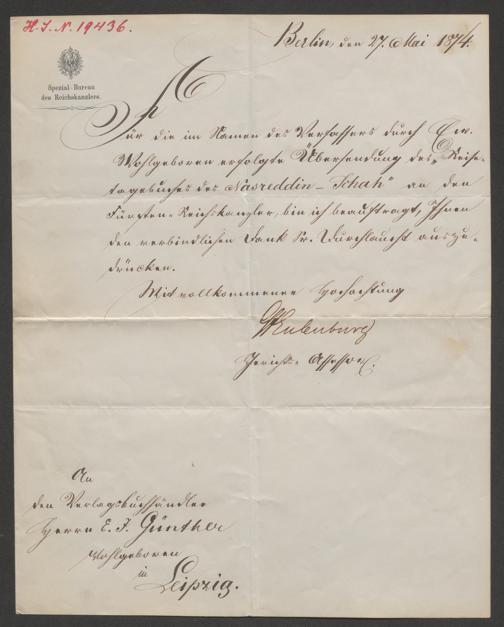 H. I. N. 19436.
Spezial-Bureau
des Reichskanzlers.
Berlin, den 27. Mai 1874.
Für die im Namen des Verfassers durch Ew.
Wohlgeboren erfolgte Übersendung des „Reise-
tagebuches des Nasreddin-Schah" an den
Fürsten-Reichskanzler, bin ich beauftragt, Ihnen
den verbindlichen Dank Sr. Durchlaucht auszu-
drücken.
Mit vollkommener Hochachtung
Eulenburg
Gerichts-Assessor.
An
den Verlagsbuchhändler
Herrn E. J. Günther
Wohlgeboren
in
Leipzig.